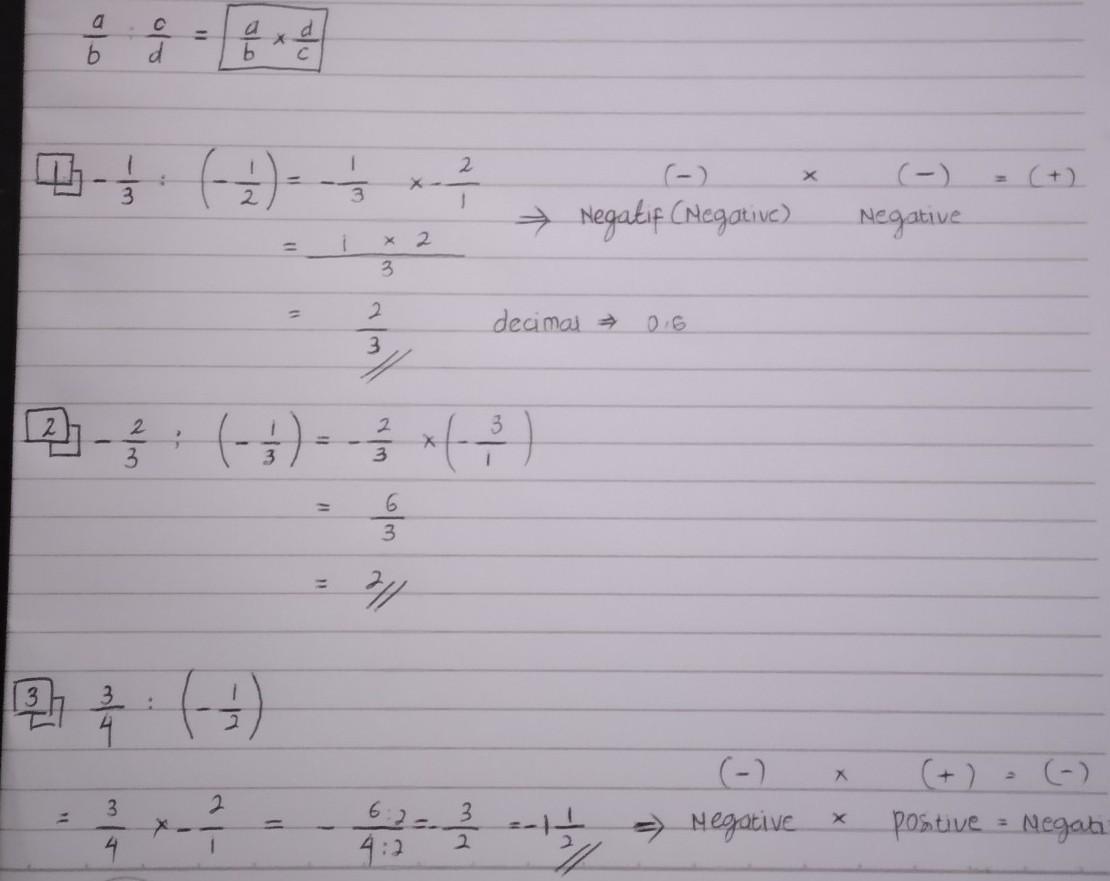 a/b : c/d = a/b × d/c
1 - 1/3 : (- 1/2) = - 1/3 × - 2/1
(-) × (-) = (+)
⇒ Negatif (Negative) Negative
= 1 × 2 / 3
= 2/3 decimal ⇒ 0.6
2 - 2/3 : (- 1/3) = - 2/3 × (- 3/1)
= 6/3
= 2
3 3/4 : (- 1/2)
(-) × (+) = (-)
= 3/4 × - 2/1 = - 6:2/4:2 = - 3/2 = -1 1/2 ⇒ Negative × positive = Negati